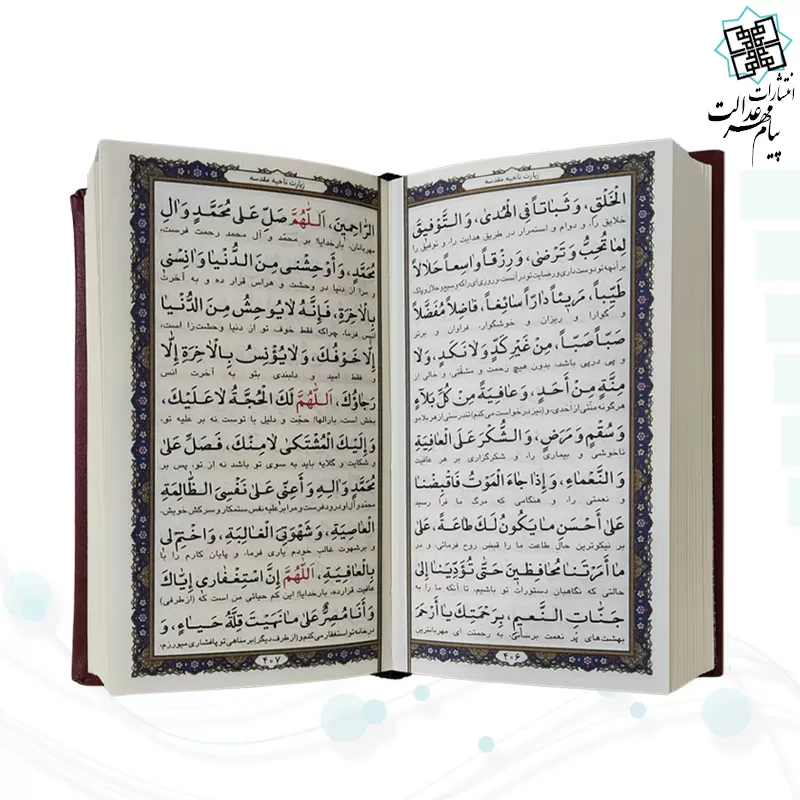 انتشارات
پیام مهر عدالت
زیارت ناحیه مقدسه
الْخَلْقِ، وَ ثَباتاً فِی الْهُدی، وَ التَّوْفیقَ
خلایق را، و دوام و استمرار در طریق هدایت را، و توفیق را
لِما تُحِبُّ وَ تَرْضی، وَ رِزْقاً واسِعاً حَلالاً
بر آنچه تو دوست داری و رضایت تو در آنست، و روزی ای را که وسیع و حلال و پاک
طَیِّباً، مَریئاً دارّاً سائِغاً، فاضِلاً مُفَضَّلاً
و گوارا و ریزان و خوشگوار، فراوان و برتر
صَبّاً صَبّاً، مِنْ غَیْرِ کَدٍّ وَ لا نَکَدٍ، وَ لا
و پی درپی باشد، بدون هیچ زحمت و مشقتی، و خالی از
مِنَّةٍ مِنْ أَحَدٍ، وَ عافِیَةً مِنْ کُلِّ بَلاءٍ
هرگونه منتی از احدی، و (نیز درخواست می کنم) تندرستی از هر بلا و
وَ سُقْمٍ وَ مَرَضٍ، وَ الشُّکْرَ عَلَی الْعافِیَةِ
ناخوشی و بیماری را، و شکرگزاری بر هر عافیت
وَ النَّعْماءِ، وَ إِذا جاءَ الْمَوْتُ فَاقْبِضْنا
و نعمتی را، و هنگامی که مرگ ما فرا رسید
عَلی أَحْسَنِ ما یَکُونُ لَکَ طاعَةً، عَلی
بر نیکوترین حال طاعت ما را قبض روح فرمائی، و در
ما أَمَرْتَنا مُحافِظینَ حَتّی تُؤَدِّیَنا إِلی
حالتی که نگاهبان دستورات تو باشیم، تا آنکه ما را به
جَنّاتِ النَّعیمِ، بِرَحْمَتِکَ یا أَرْحَمَ
بهشت‌های پُر نعمت برسانی، به رحمتت ای مهربانترین
۴۰۶
زیارت ناحیه مقدسه
الرّاحِمینَ، اَللّهُمَّ صَلِّ عَلی مُحَمَّدٍ وَ الِ
مهربانان، بارخدایا! بر محمّد و آل محمد رحمت فرست،
مُحَمَّدٍ، وَ أَوْحِشْنی مِنَ الدُّنْیا وَ انِسْنی
و مرا از دنیا در وحشت و هراس قرار ده و به آخرت
بِالْاخِرَةِ، فَإِنَّهُ لا یُوحِشُ مِنَ الدُّنْیا
انس فرما، چراکه فقط خوف تو از دنیا وحشت زا است،
إِلّا خَوْفُکَ، وَ لا یُؤْنِسُ بِالْاخِرَةِ إِلّا
و فقط امید و دلبندی بتو به آخرت انس
رَجاؤُکَ، اَللّهُمَّ لَکَ الْحُجَّةُ لا عَلَیْکَ،
بخش است، بارالها! حجّت و دلیل با توست نه بر علیه تو،
وَ إِلَیْکَ الْمُشْتَکی لا مِنْکَ، فَصَلِّ عَلی
و شکایت و گلایه باید به سوی تو باشد نه از تو، پس بر
مُحَمَّدٍ وَ الِهِ وَ أَعِنّی عَلی نَفْسِیَ الظّالِمَةِ
محمد و آل او درود فرست و مرا بر علیه نفس ستمکار و سرکش خویش،
الْعاصِیَةِ، وَ شَهْوَتِیَ الْغالِبَةِ، وَ اخْتِمْ لی
و برشهوت غالب خودم یاری فرما، و پایان کارم را با
بِالْعافِیَةِ، اَللّهُمَّ إِنَّ اسْتِغْفاری إِیّاکَ
عافیت قرارده، بارخدایا! این کم حیائی من است که (ازطرفی)
وَ أَنَا مُصِرٌّ عَلی ما نَهَیْتَ قِلَّةُ حَیاءٍ، وَ
درخانه تو استغفار می کنم و (از طرف دیگر) بر مناهی تو پافشاری میورزم،
۴۰۷